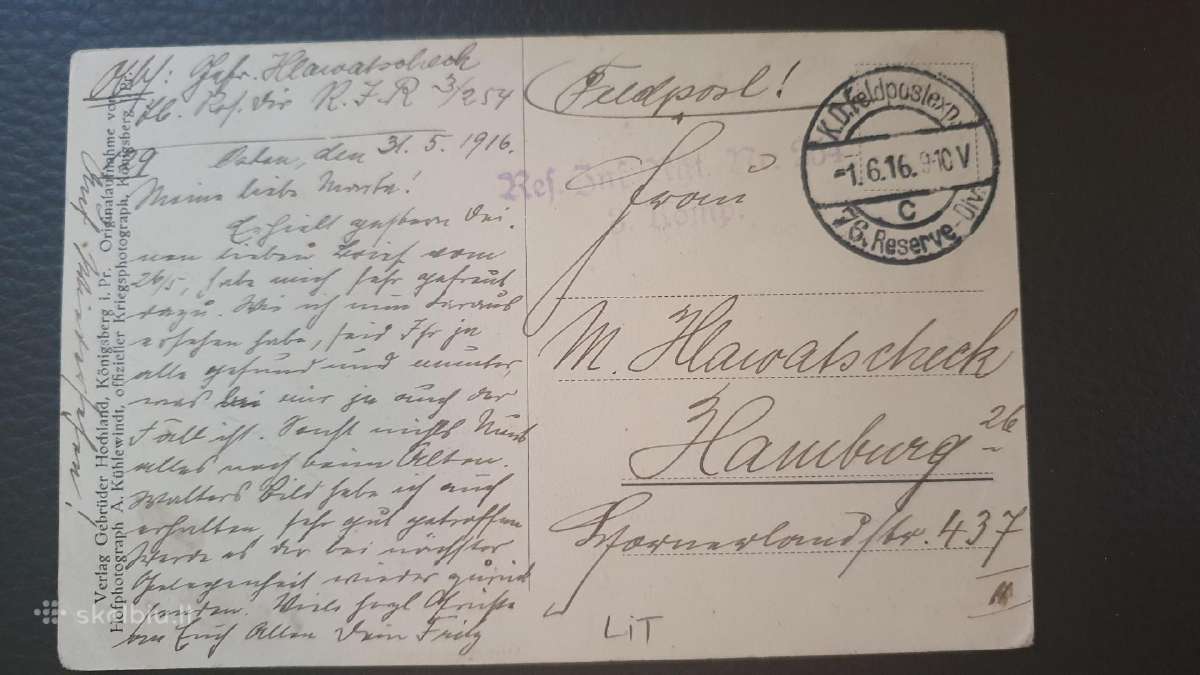 Abs: Gefr. Hlawatscheck
R. I. R. 3/254
Osten, den 31. 5. 1916.
Meine liebe Marta!
Erhielt gestern Dei-
nen lieben Brief vom
26/5, habe mich sehr gefreut
dazu. Wie ich nun daraus
ersehen habe, seid Ihr ja
alle gesund und munter,
was bei mir ja auch der
Fall ist. Sonst nichts Neues
alles noch beim Alten.
Walters Bild habe ich auch
erhalten, sehr gut getroffen
werde es dir bei nächster
Gelegenheit wieder zurück
senden. Viele hrzl Grüße
an Euch Allen Dein Fritz
Auf Wiedersehen!
Verlag Gebrüder Hochland, Königsberg i. Pr. Originalaufnahme von
Hofphotograph A. Kühlewindt, offizieller Kriegsphotograph, Königsberg i. Pr.
Feldpost!
Res. Inf. Rgt. No. 254
3. Komp.
K.D. Feldpostexp.
-1.6.16. 9-10 V
c
76. Reserve-Div.
Frau
M. Hlawatscheck
Hamburg 26
437
LiT
skelbiu.lt